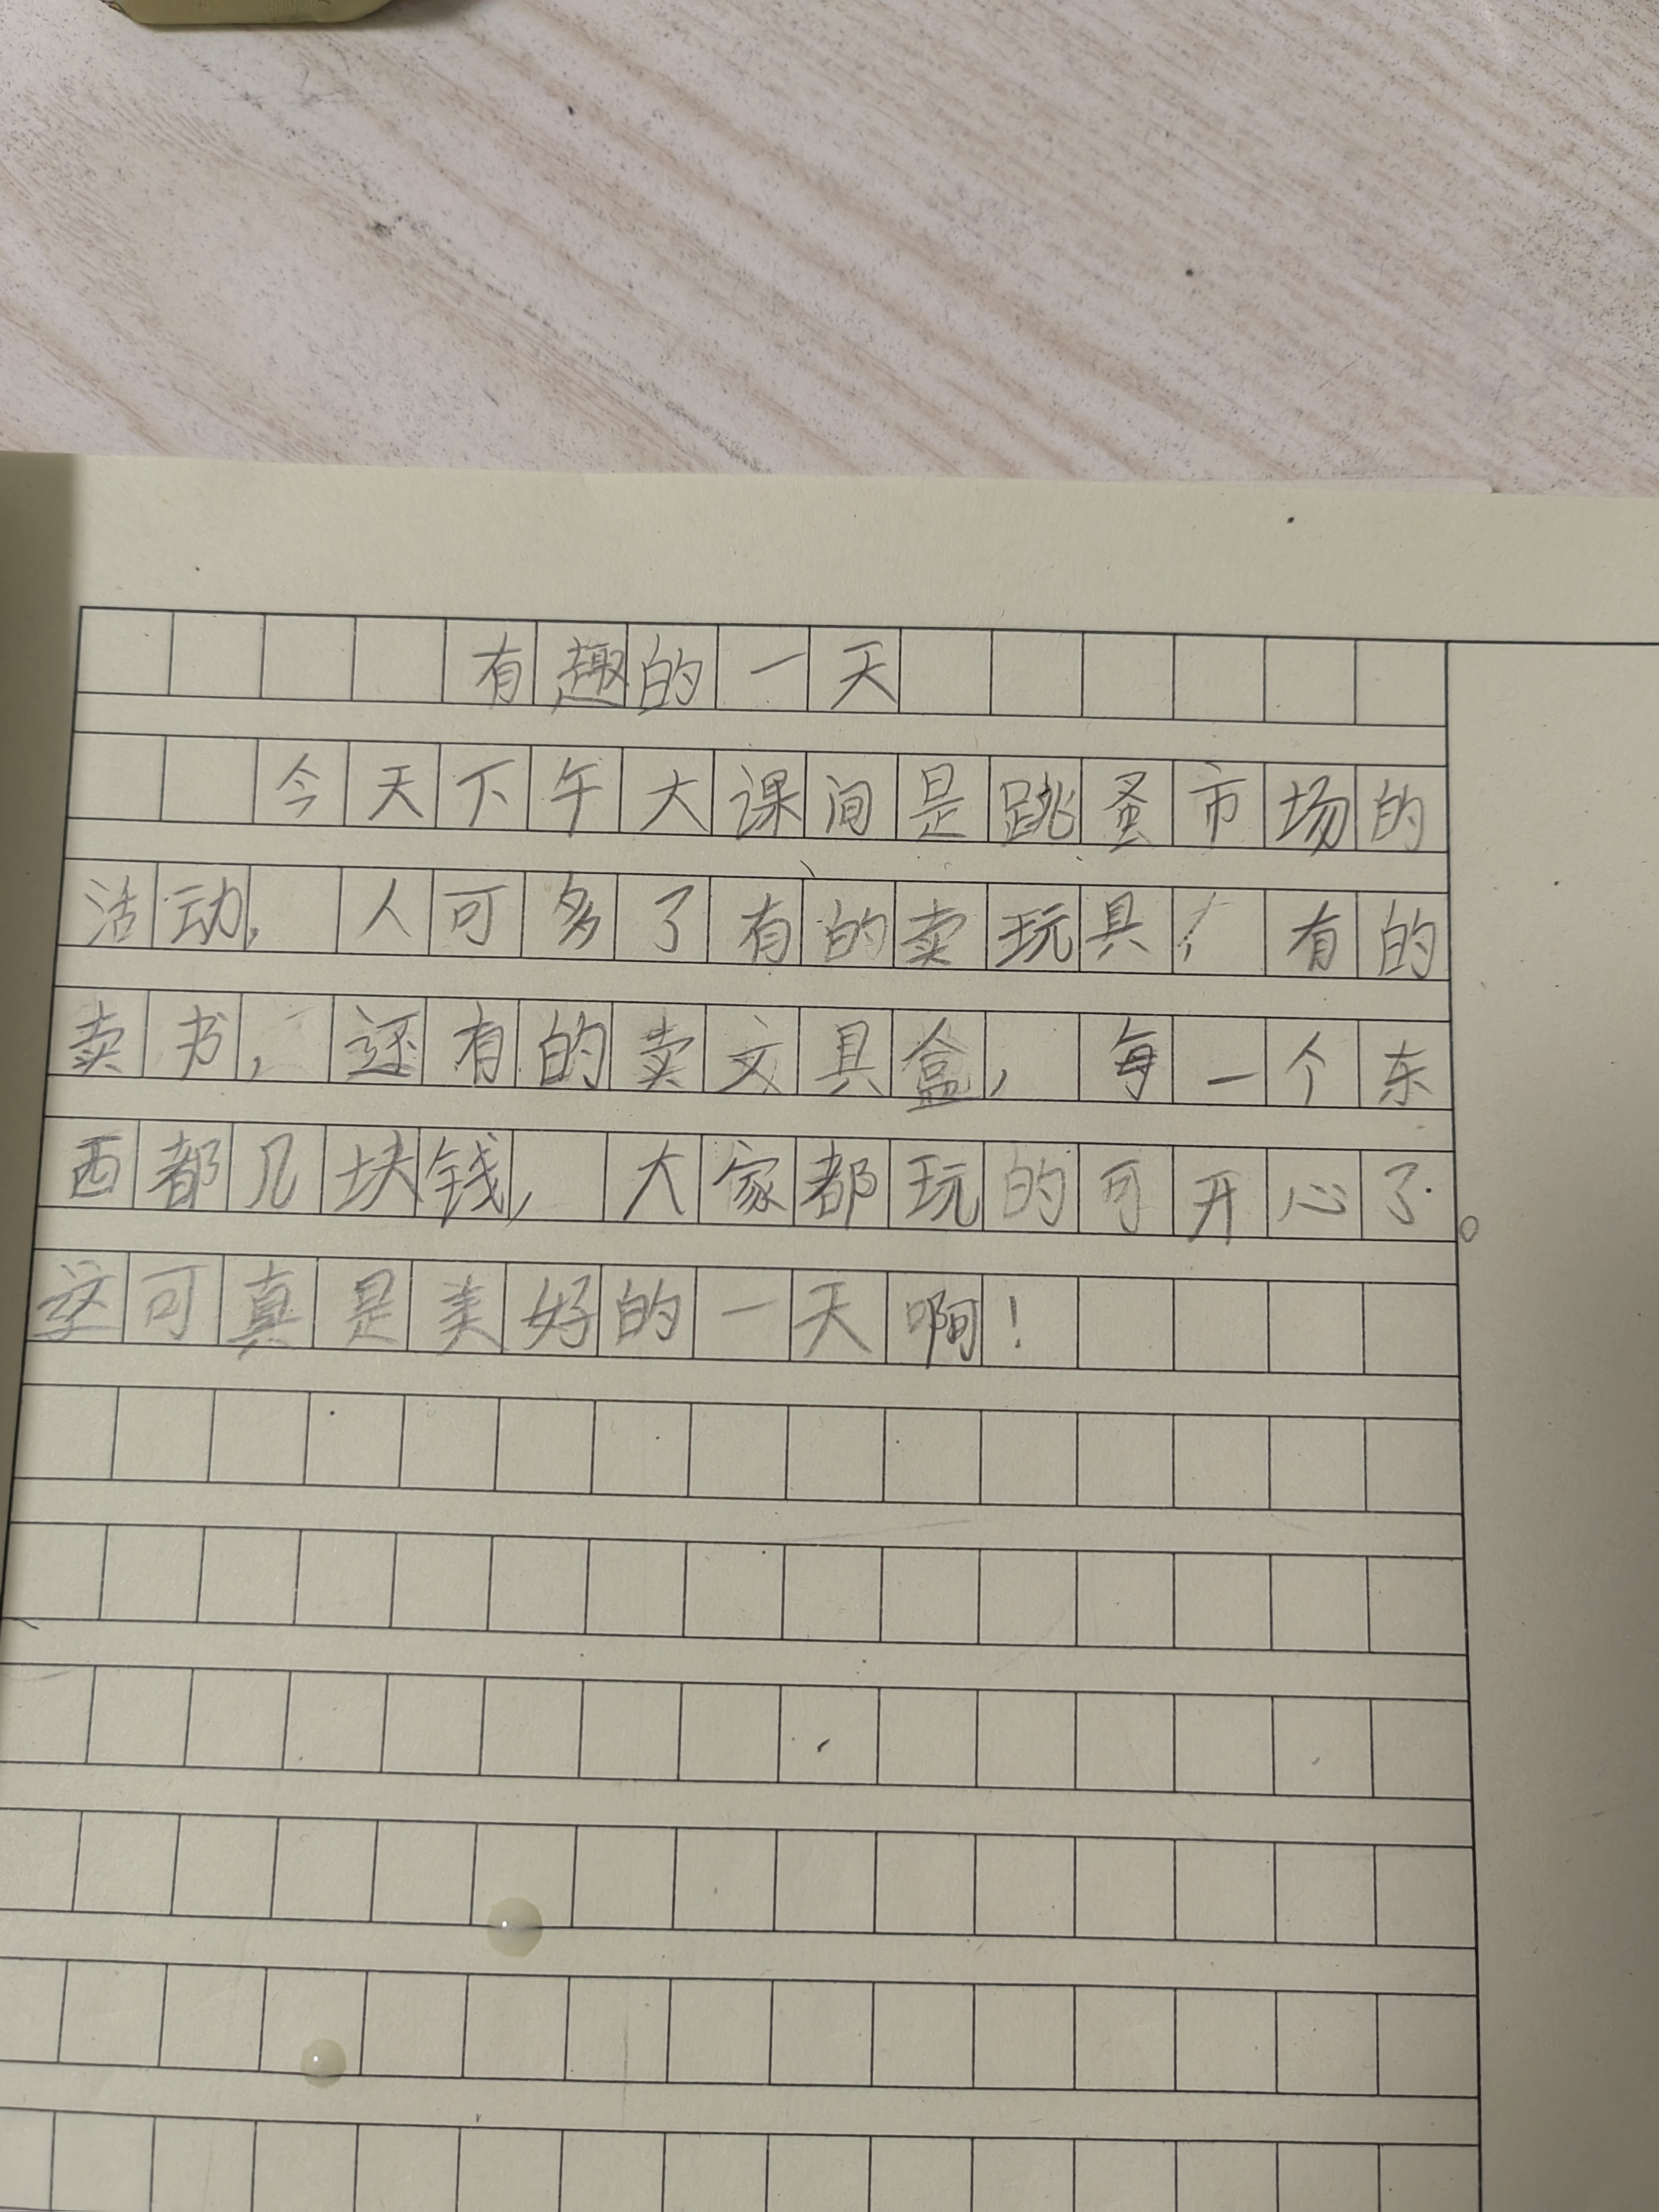 有趣的一天
今天下午大课间是跳蚤市场的
活动，人可多了、有的卖玩具，有的
卖书，还有的卖文具盒，每一个东
西都几块钱，大家都玩的可开心了。
这可真是美好的一天啊！